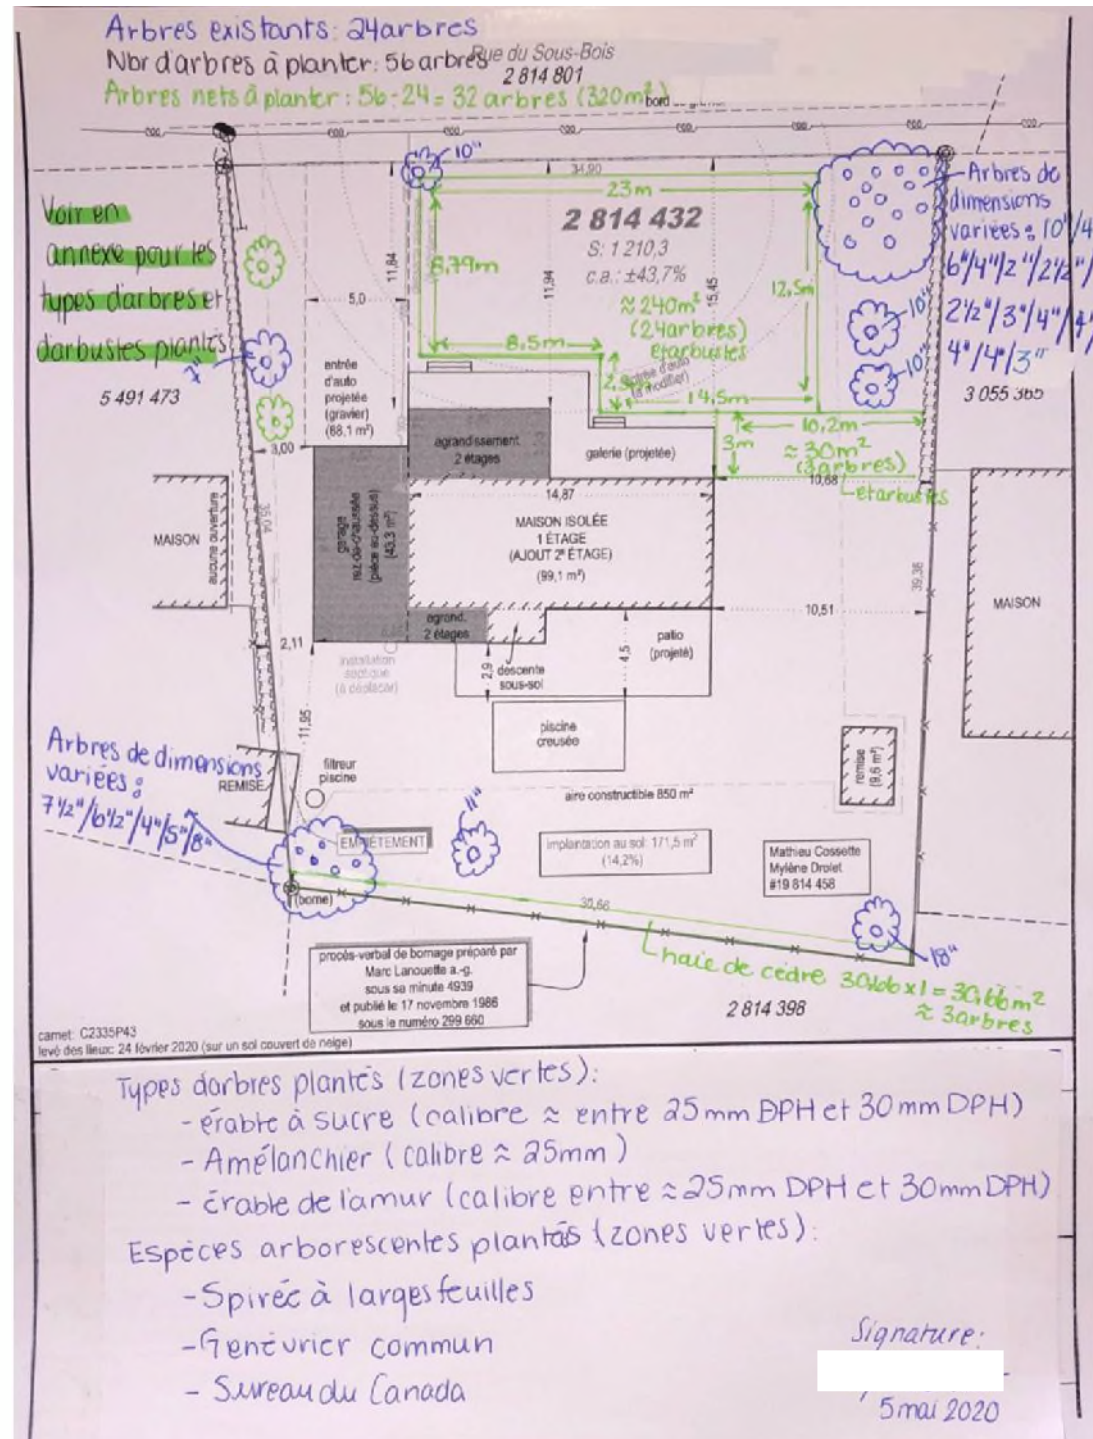 Arbres existants: 24arbres
Nbr d'arbres à planter: 56 arbres
Rue du Sous-Bois
2 814 801
Arbres nets à planter: 56-24= 32 arbres (320m²)
bord
10"
34,90
23m
Arbres de
dimensions
variées: 10"/4
6"/4"/2"/2½"/
2½"/3"/4"/4"
4"/4"/3"
Voir en
annexe pour les
types d'arbres et
d'arbustes plantés
2 814 432
S: 1 210,3
c.a.: ±43,7%
≈240m²
(24arbres)
et arbustes
8,79m
11,84
11,94
15,45
12,5m
5,0
8,5m
14,5m
10"
10"
7"
5 491 473
3 055 365
entrée
d'auto
projetée
(gravier)
(68,1 m²)
entrée d'auto
(à modifier)
3m
10,2m
≈30m²
(3arbres)
et arbustes
3,00
agrandissement
2 étages
galerie (projetée)
10,68
14,87
35,04
MAISON
aucune ouverture
garage
rez-de-chaussée
(pièce au-dessus)
(43,3 m²)
MAISON ISOLÉE
1 ÉTAGE
(AJOUT 2ᵉ ÉTAGE)
(99,1 m²)
39,36
MAISON
10,51
agrand.
2 étages
2,11
installation
septique
(à déplacer)
2,9
descente
sous-sol
4,5
patio
(projeté)
11,95
piscine
creusée
remise
(9,6 m²)
Arbres de dimensions
variées:
7½"/6½"/4"/5"/8"
REMISE
filtreur
piscine
aire constructible 850 m²
11"
EMPIÈTEMENT
implantation au sol: 171,5 m²
(14,2%)
Mathieu Cossette
Mylène Drolet
#19 814 458
(borne)
30,66
18"
haie de cèdre 30,66 x 1 = 30,66m²
≈ 3arbres
procès-verbal de bornage préparé par
Marc Lanouette a.-g.
sous sa minute 4939
et publié le 17 novembre 1986
sous le numéro 299 660
2 814 398
carnet: C2335P43
levé des lieux: 24 février 2020 (sur un sol couvert de neige)
Types d'arbres plantés (zones vertes):
- érable à sucre (calibre ≈ entre 25mm DPH et 30mm DPH)
- Amélanchier (calibre ≈ 25mm)
- Érable de l'amur (calibre entre ≈25mm DPH et 30mm DPH)
Espèces arborescentes plantés (zones vertes):
- Spirée à larges feuilles
- Genévrier commun
- Sureau du Canada
Signature:
5 mai 2020